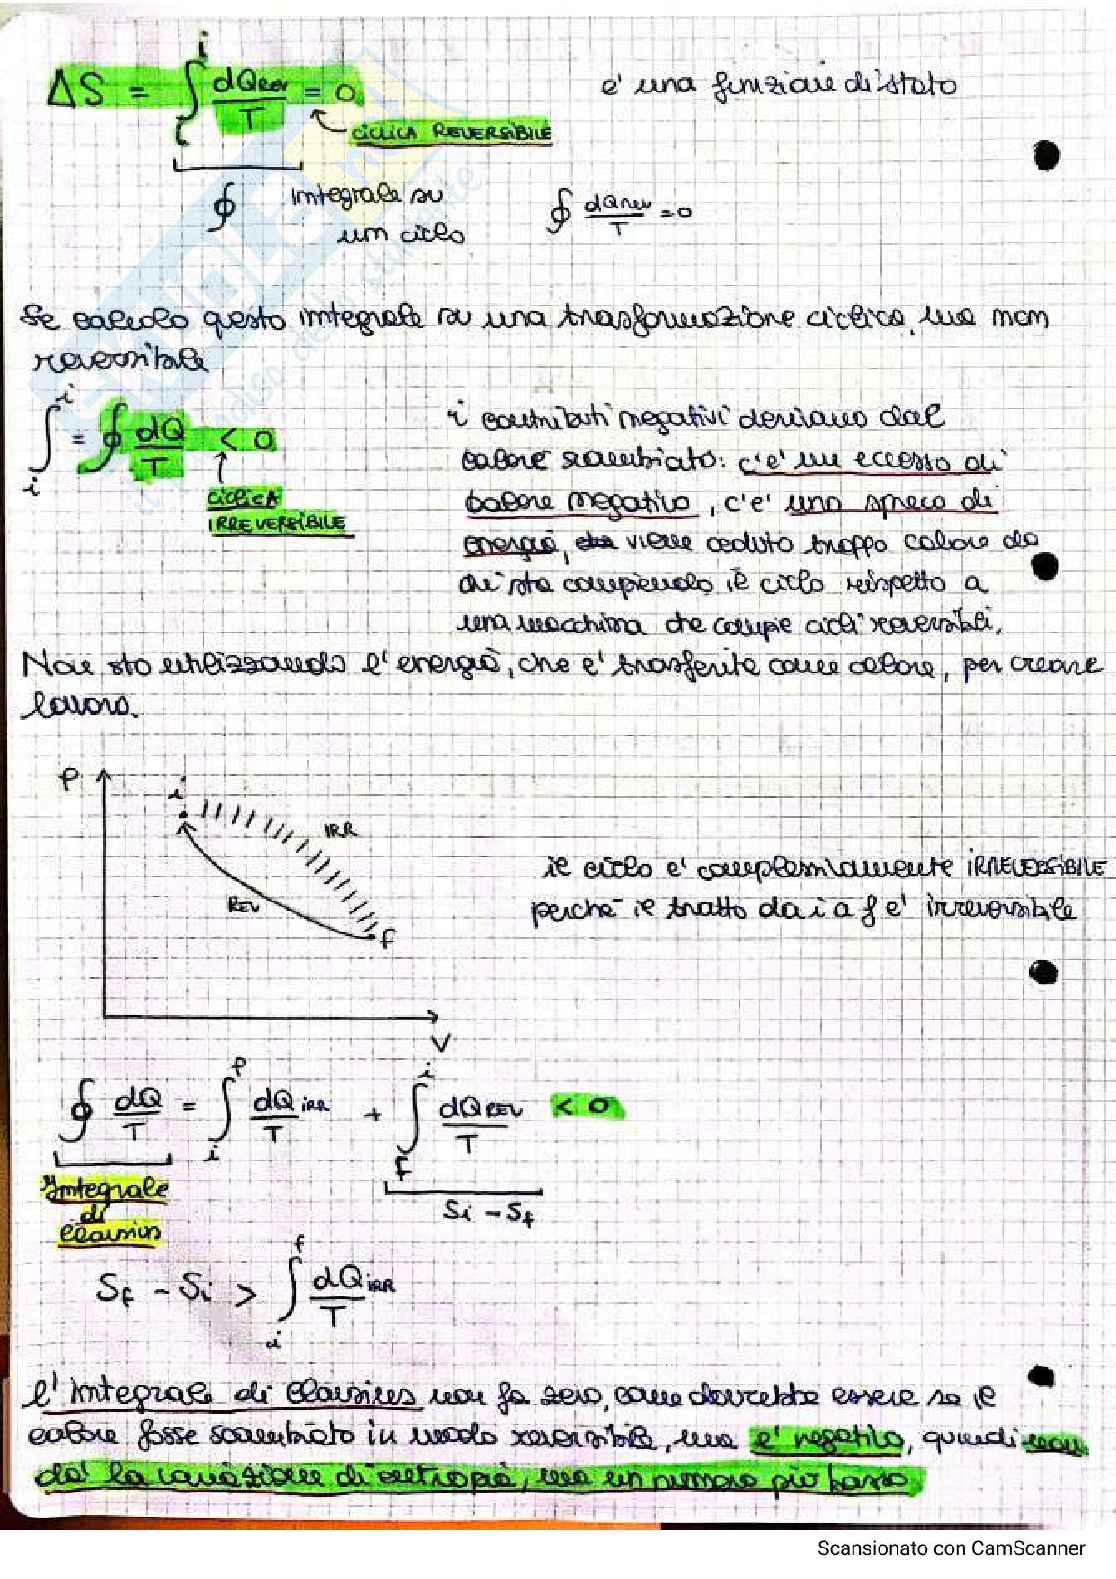 ΔS = ∫_i^i dQrev/T = 0 è una funzione di stato
CICLICA REVERSIBILE
∮ integrale su un ciclo ∮ dQrev/T = 0
Se calcolo questo integrale su una trasformazione ciclica, ma non
reversibile
∫_i^i = ∮ dQ/T < 0
CICLICA
IRREVERSIBILE
i contributi negativi derivano dal
calore scambiato: c'è un eccesso di
calore negativo, c'è uno spreco di
energia, viene ceduto troppo calore da
chi sta compiendo il ciclo rispetto a
una macchina che compie cicli reversibili.
Non sto utilizzando l'energia, che è trasferita come calore, per creare
lavoro.
P
i
IRR
REV
f
V
il ciclo è complessivamente IRREVERSIBILE
perché il tratto da i a f è irreversibile
∮ dQ/T = ∫_i^f dQ_IRR/T + ∫_f^i dQ_REV/T < 0
Integrale
di
Clausius
Si - Sf
Sf - Si > ∫_i^f dQ_IRR/T
l'integrale di Clausius non fa zero, come dovrebbe essere se il
calore fosse scambiato in modo reversibile, ma è negativo, quindi non
dà la variazione di entropia, ma un numero più basso
Scansionato con CamScanner